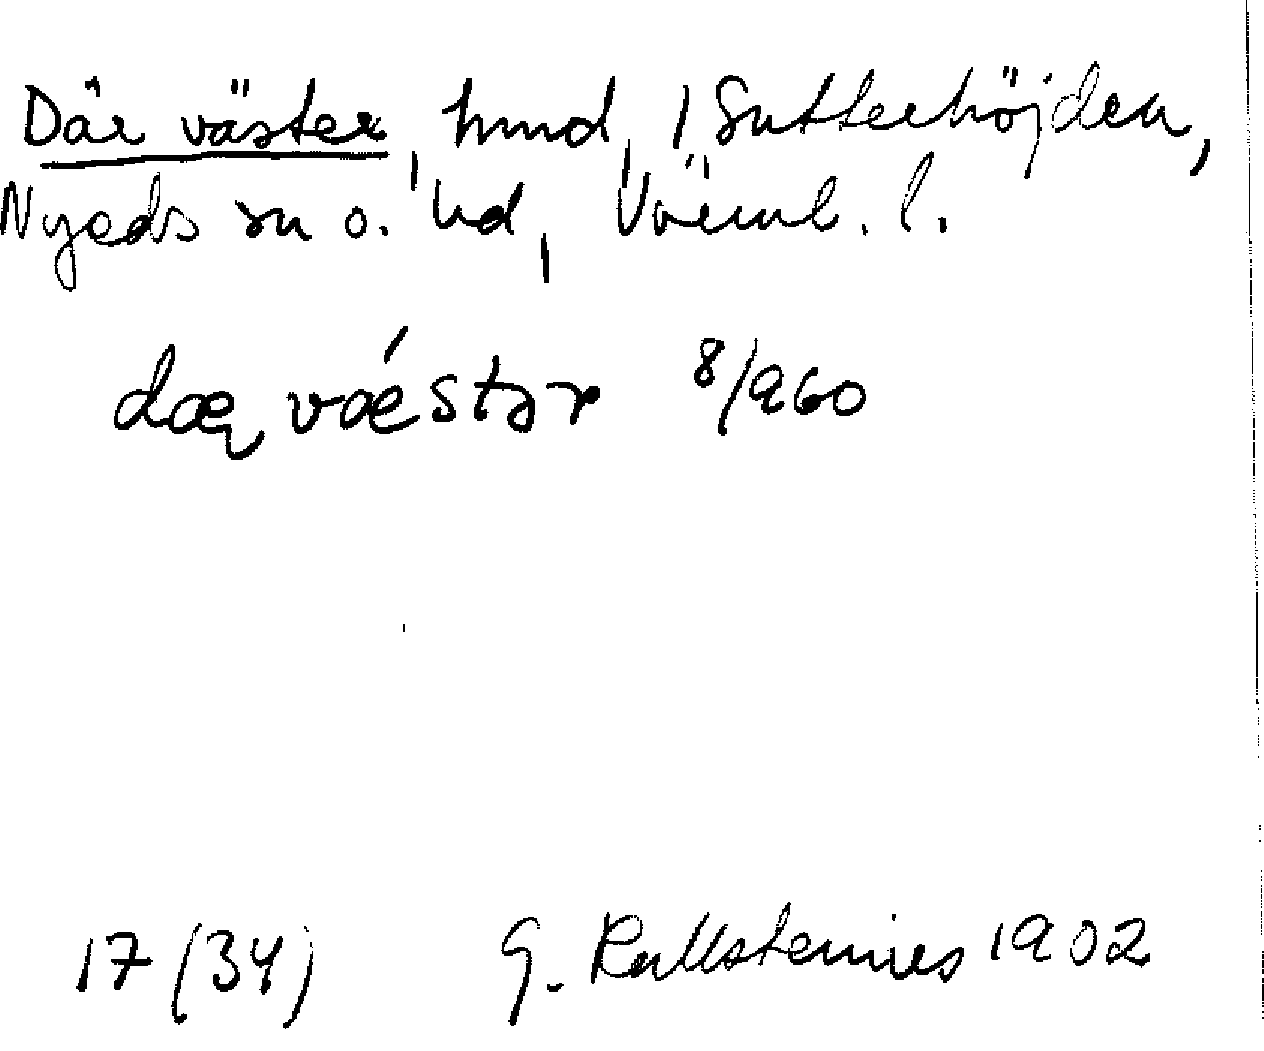 Där väster, hmd, 1 Sutterhöjden,
Nyeds sn o. hd, Värml. l.
dæɽ vǽstər 8/960
17 (34) G. Kallstenius 1902